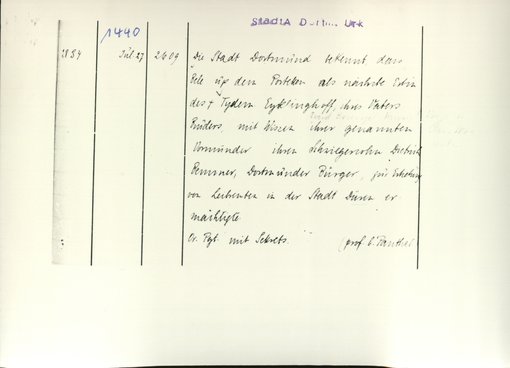 1440
Stadt Dortm. Urk
2854 Jul. 27 2609 Die Stadt Dortmund bekennt, dass
Bele up dem Porteken als nächste Erbin
des † Tydem Eyklinghoff, ihres Vaters
Bruders, mit Wissen ihrer genannten
Vormünder ihren Schwiegersohn Dietrich
Remmer, Dortmunder Bürger, zur Erhebung
von Leibrenten in der Stadt Düren er
mächtigte.
Or. Pgt. mit Sekrets.